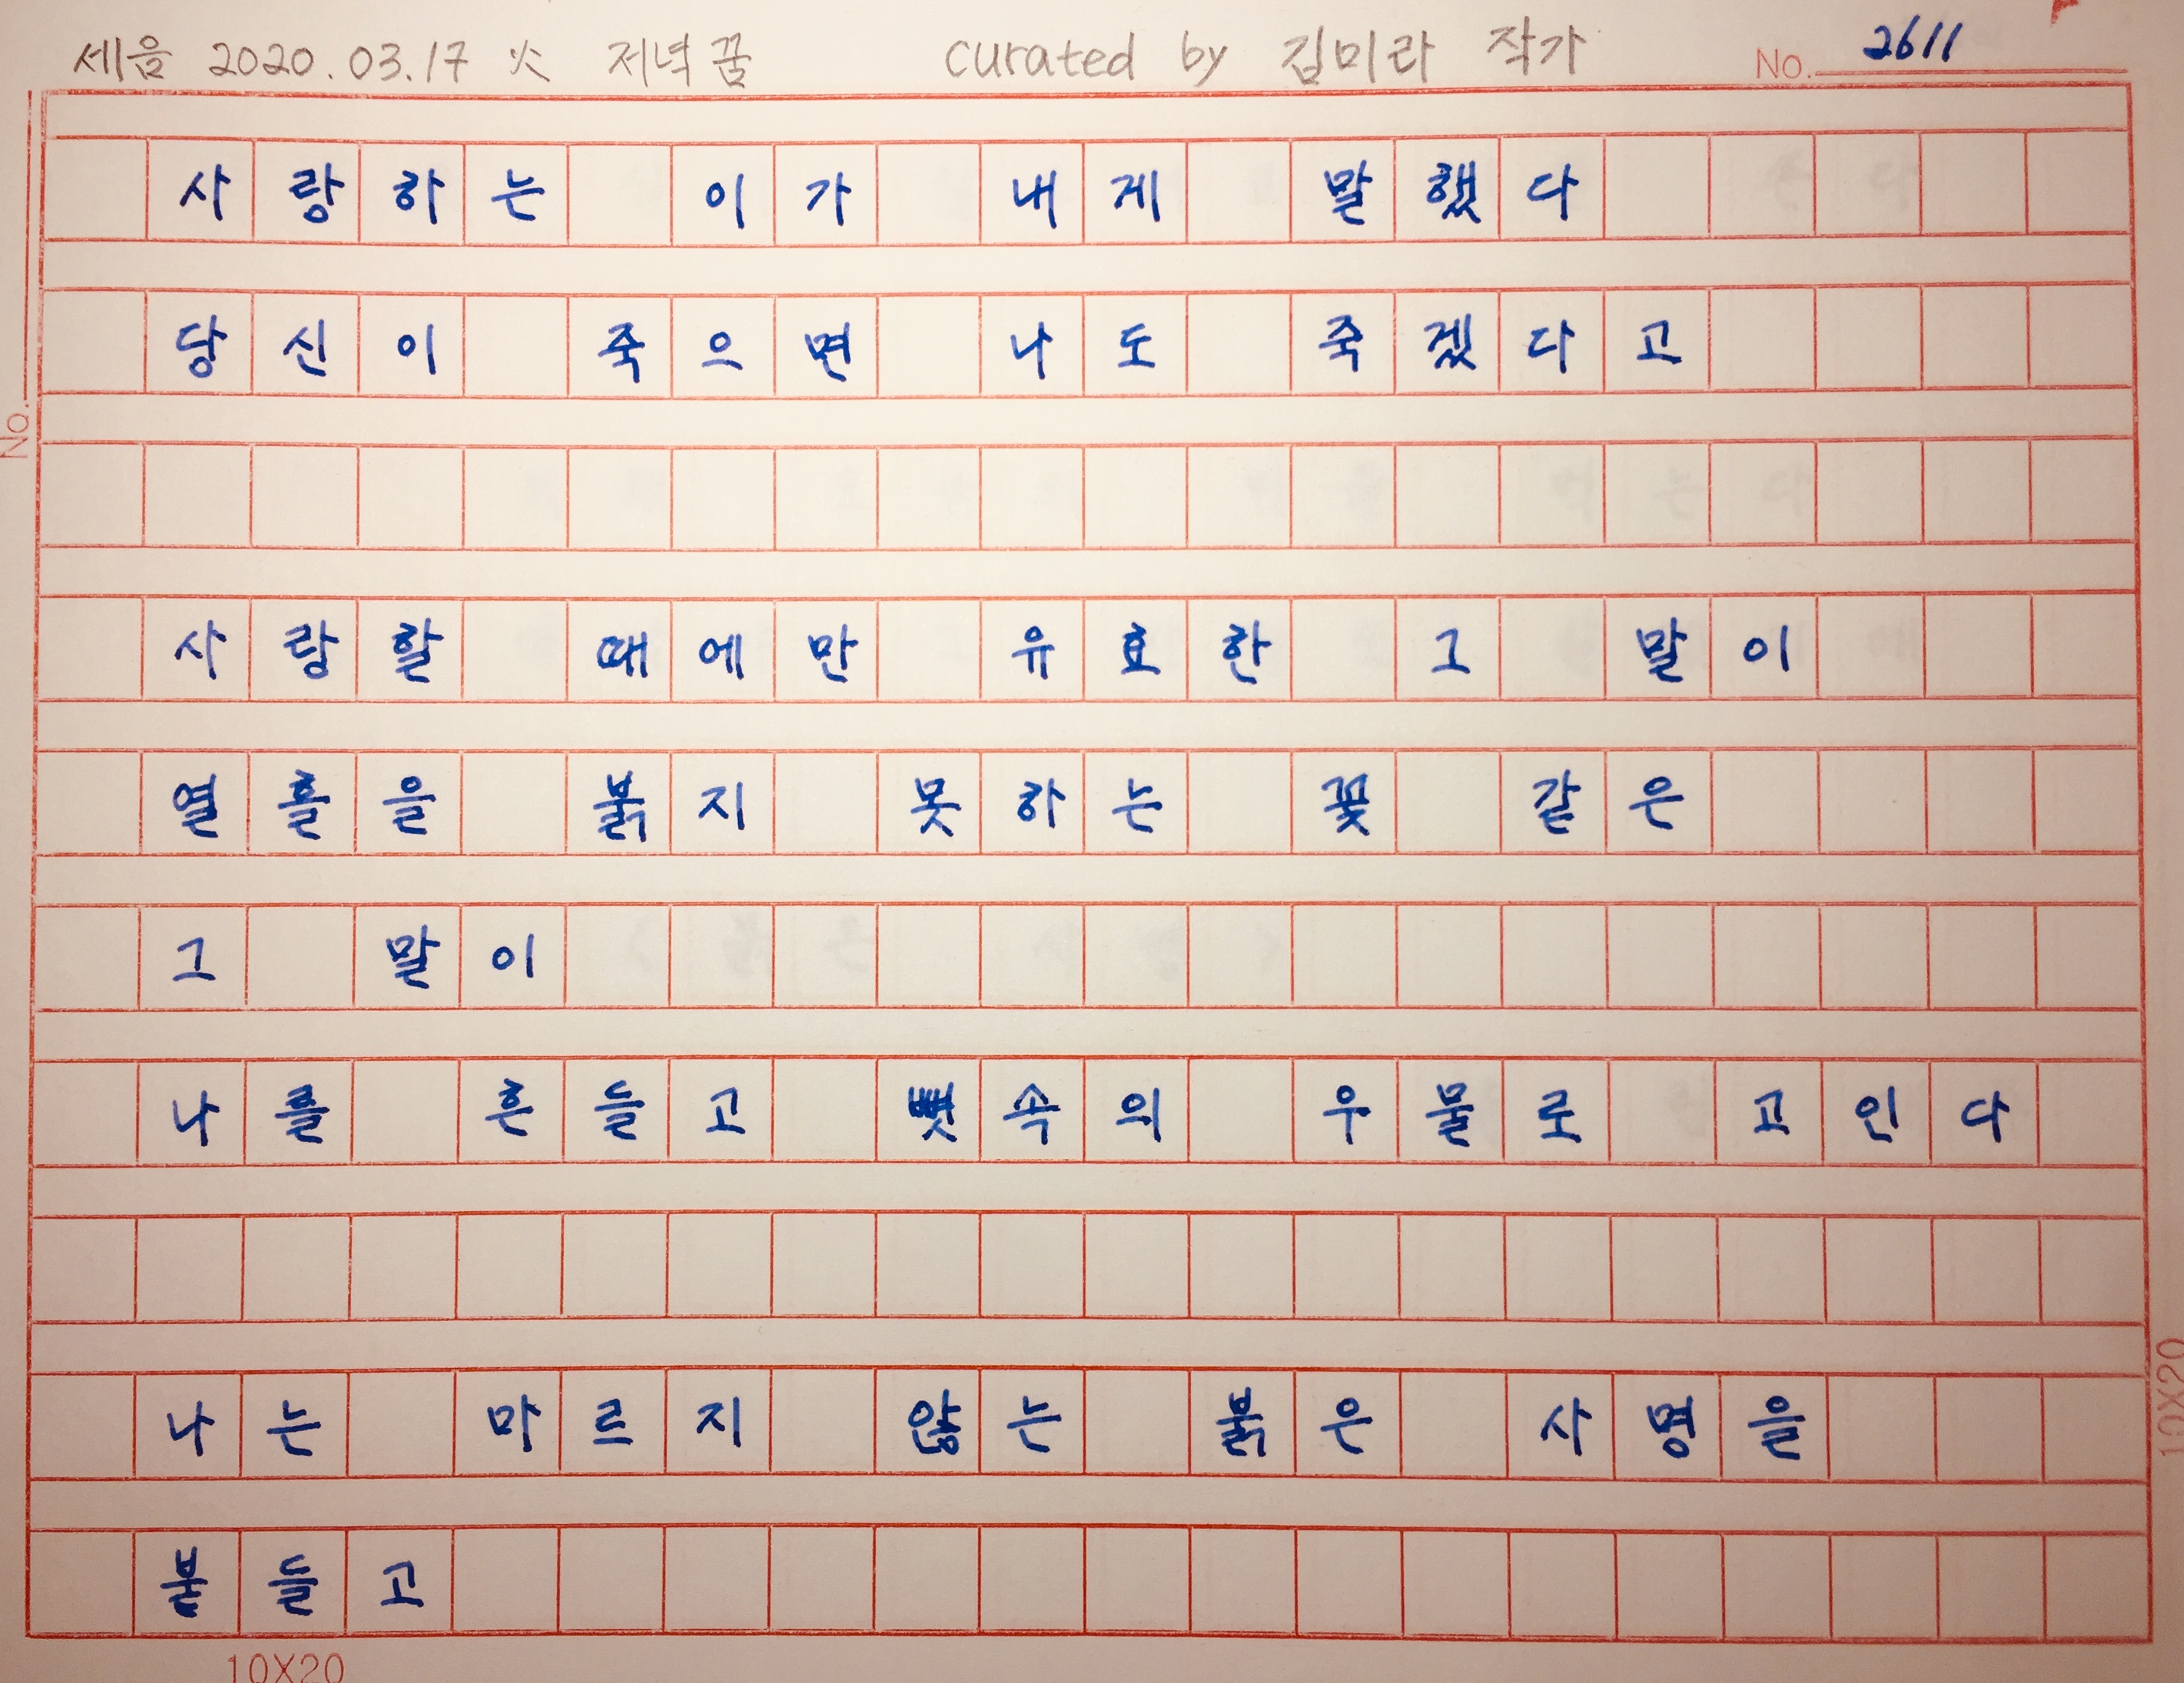 세음 2020.03.17 火 저녁꿈 curated by 김미라 작가 No. 2611
사랑하는 이가 내게 말했다
당신이 죽으면 나도 죽겠다고
No.
사랑할 때에만 유효한 그 말이
열흘을 붉지 못하는 꽃 같은
그 말이
나를 흔들고 뼛속의 우물로 고인다
나는 마르지 않는 붉은 사명을
붙들고
10X20
10X20